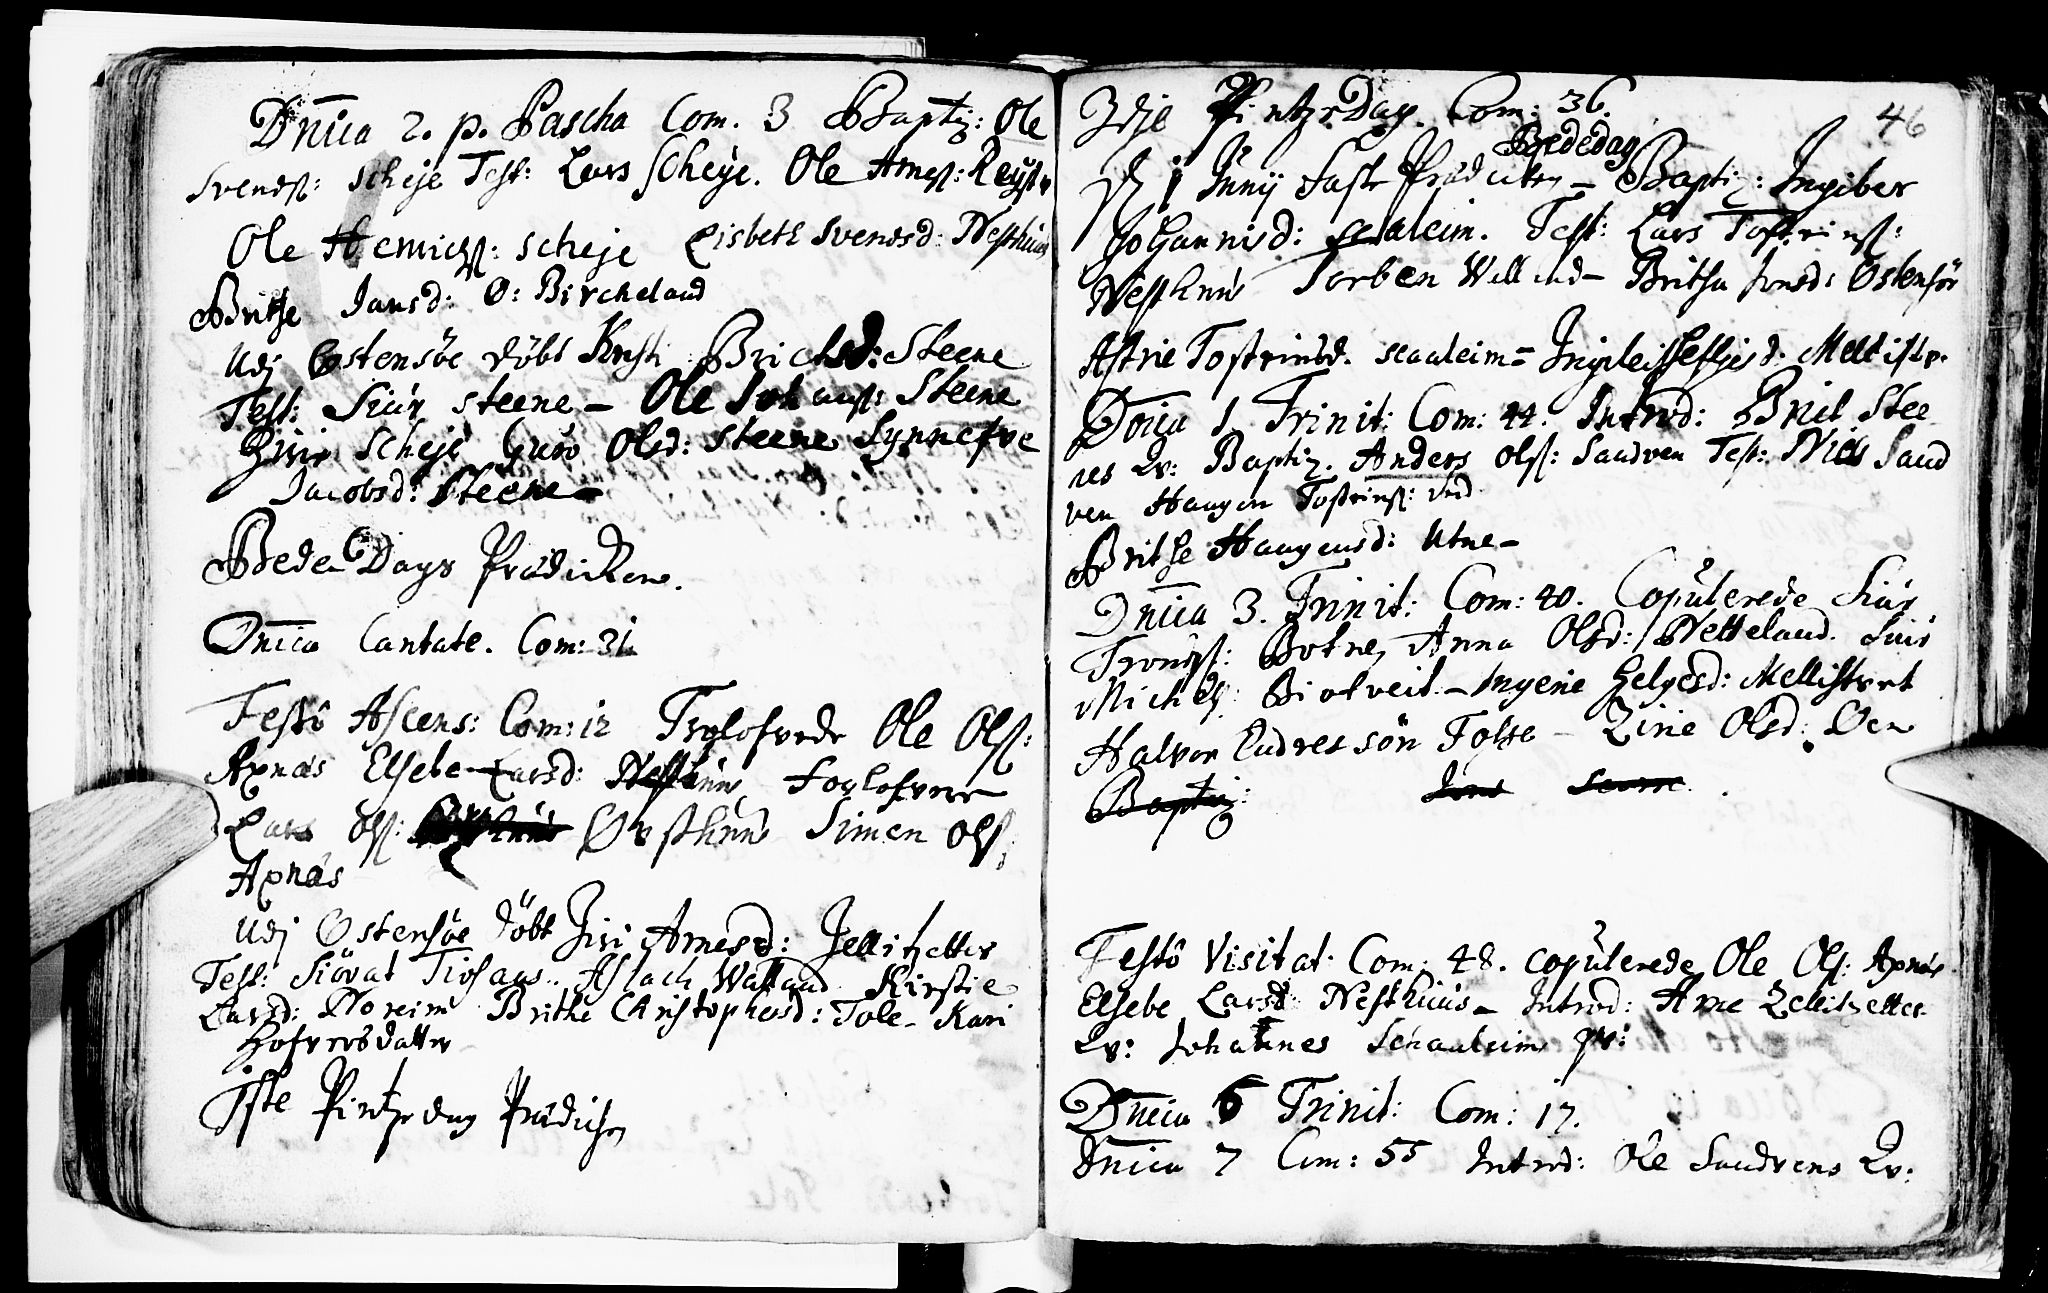 Dnica 2. p. Pascha Com. 3 Baptiz: Ole
Svends: Scheje Test: Lars Scheje. Ole Arnes:
Ole Henrichs: Scheje Lisbeth Svendsd: Nesthuus
Brithe Jansd: Ø: Bircheland
Udj Østensøe døbt Kirsti Brichsd: Steene
Test: Siur Steene - Ole Johans: Steene
Ziri Scheje Guro Olsd: Steene Synnefve
Jacobsd: Steene -
Bede Dags Prædicken.
Dnica Cantate. Com: 31
Festô Ascens: Com: 12 Trolofvede Ole Ols:
Axnæs Elsebe Larsd: Nesthuus Forlofvere
Lars Ols: Øysthuus Simen Ols:
Axnæs
Udj Østensøe døbt Ziri Arnesd: Zellitzetter
Test: Siovat Aslach Walland Kirstie
Larsd: Noreim Brithe Christophersd: Tole - Kari
Hofversdatter
1ste Pintzedag Prædichen
2dje Pintzedag. Com: 36. 46
Bededag
D 1 Junij Faste Prædicken - Baptiz: Ingeber
Johannisd: Scaaleim. Test: Lars Tostens:
Nesthuus Torben Walland - Brithe Jonsd: Østensøe
Astrie Tostensd. Scaaleim - Mellistr.
Dnica 1. Trinit: Com: 44. Introd: Brit Stee-
nes Qv: Baptiz. Anders Ols: Sandven Test: Niels Sand
ven Haagen Tostens:
Brithe Haagensd: Utne -
Dnica 3. Trinit: Com: 40. Copulerede Siur
Tronds: Botne, Anna Olsd: Netteland. Siur
Michels: Biotveit - Ingerie Helgesd: Mellistvet
Halvor Endressøn Folse - Zirie Olsd: Øen
Baptiz: Jons
Festô Visitat: Com: 48. copulerede Ole Ols: Axnæs
Elsebe Larsd: Nesthuus - Introd: Arne Zellitzetter
Qv: Johannes Schaaleim Qv:
Dnica 6 Trinit: Com: 17.
Dnica 7 Com: 55 Introd: Ole Sandvens Qv: